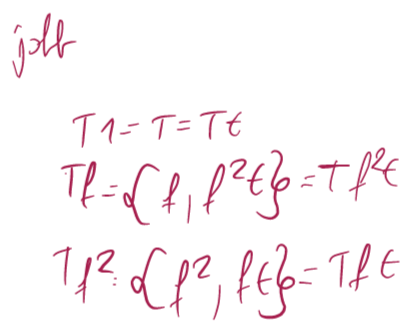 jobb
T1 = T = Tt
Tf = {f, f²t} = Tf²t
Tf² = {f², ft} = Tft